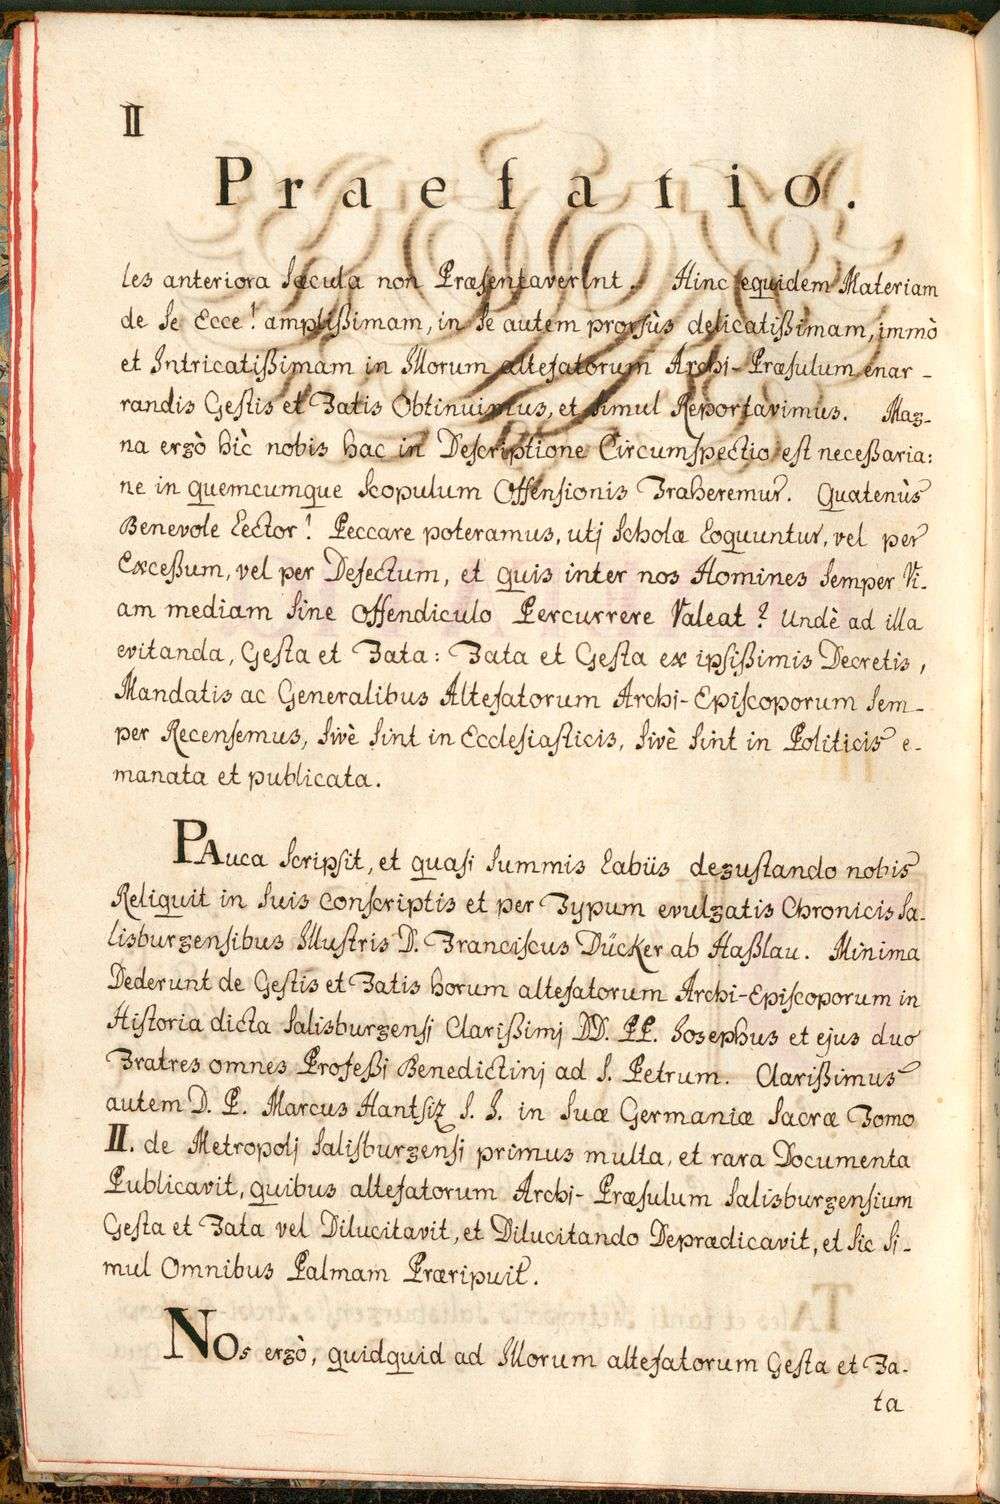 II
Praefatio.
les anteriora Sæcula non Præsentaverint. Hinc equidem Materiam
de Se Ecce! amplißimam, in Se autem prorsùs delicatißimam, immò
et Intricatißimam in Illorum altefatorum Archi-Præsulum enar-
randis Gestis et Fatis Obtinuimus, et simul Reportavimus. Mag-
na ergò hîc nobis hac in Descriptione Circumspectio est neceßaria:
ne in quemcumque Scopulum Offensionis Traheremur. Quatenùs
Benevole Lector! Peccare poteramus, utj Scholæ Loquuntur, vel per
Exceßum, vel per Defectum, et quis inter nos Homines Semper Vi-
am mediam Sine Offendiculo Percurrere Valeat? Undè ad illa
evitanda, Gesta et Fata: Fata et Gesta ex ipsißimis Decretis,
Mandatis ac Generalibus Altefatorum Archi-Episcoporum Sem-
per Recensemus, Sivè Sint in Ecclesiasticis, Sivè Sint in Politicis e-
manata et publicata.
PAuca Scripsit, et quasi Summis Labiis degustando nobis
Reliquit in Suis Conscriptis et per Typum evulgatis Chronicis Sa-
lisburgensibus Illustris D. Franciscus Dücker ab Haßlau. Minima
Dederunt de Gestis et Fatis horum altefatorum Archi-Episcoporum in
Historia dicta Salisburgensi Clarißimj DD. PP. Josephus et ejus duo
Fratres omnes Profeßi Benedictinj ad S. Petrum. Clarißimus
autem D. P. Marcus Hantsiz S. J. in Suæ Germaniæ Sacræ Tomo
II. de Metropolj Salisburgensi primus multa, et rara Documenta
Publicavit, quibus altefatorum Archi-Præsulum Salisburgensium
Gesta et Fata vel Dilucitavit, et Dilucitando Deprædicavit, et Sic Si-
mul Omnibus Palmam Præripuit.
NOs ergò, quidquid ad Illorum altefatorum Gesta et Fa-
ta